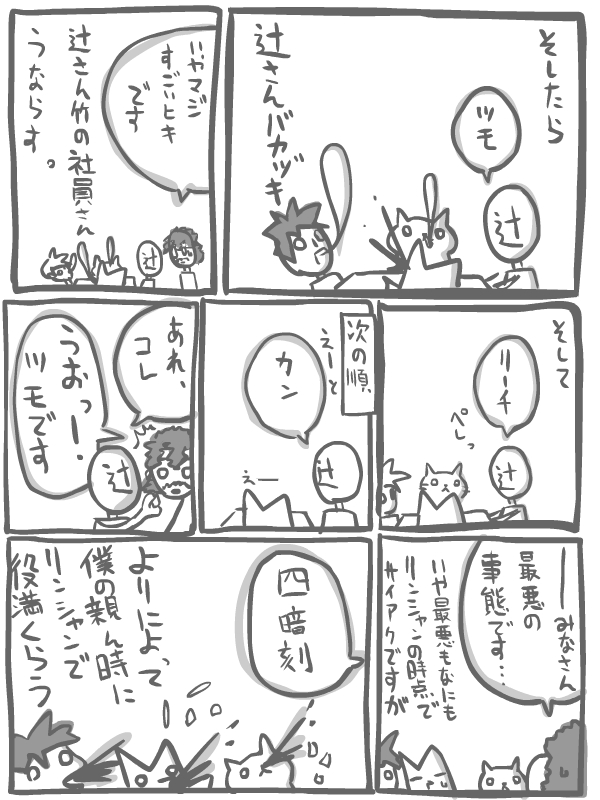 そしたら
ツモ
辻
辻さんバカヅキ
いやマジ
すごいヒキ
です
辻さん竹の社員さん
うならす。
辻
そして
リーチ
ペしっ
辻
次の順、
えーと
カン
辻
えー
あれ、
コレ
うおっー、
ツモです
辻
ーみなさん
最悪の
事態です…
いや最悪もなにも
リンシャンの時点で
サイアクですが
四暗刻
よりによって
僕の親ん時に
リンシャンで
役満くらう